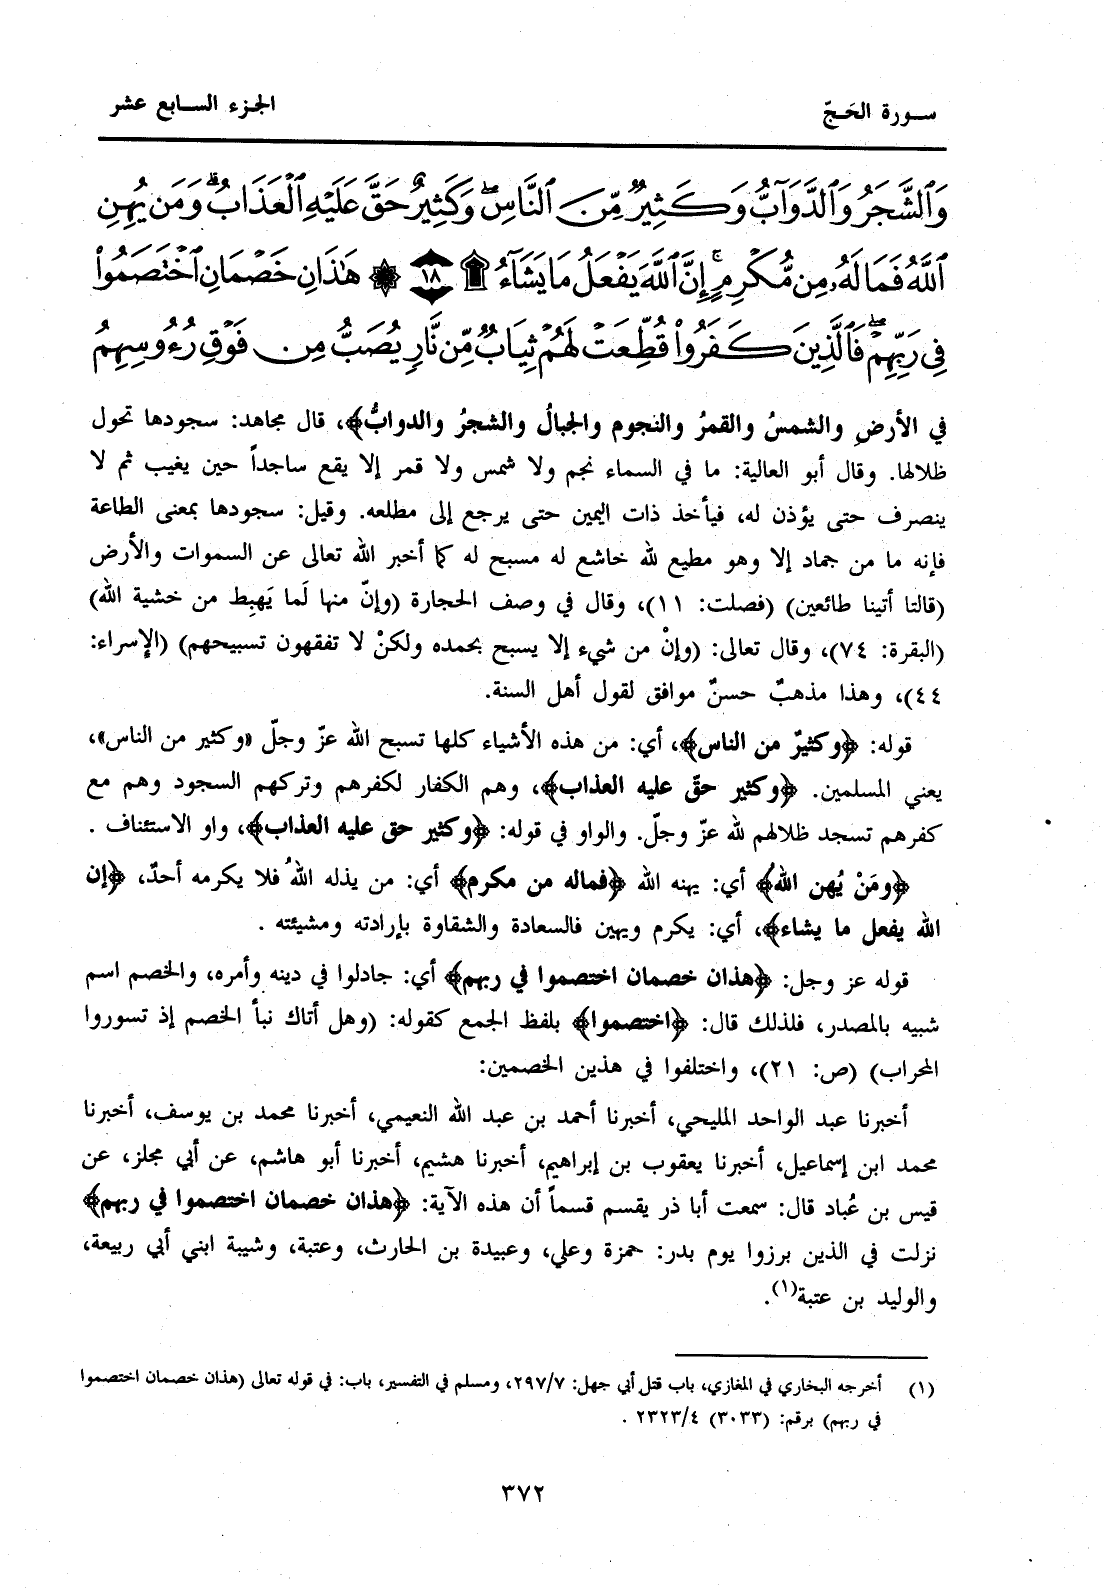 سورة الحَجّ
الجزء السابع عشر
وَٱلشَّجَرُ وَٱلدَّوَآبُّ وَكَثِيرٌ مِّنَ ٱلنَّاسِۖ وَكَثِيرٌ حَقَّ عَلَيْهِ ٱلْعَذَابُۗ وَمَن يُهِنِ
ٱللَّهُ فَمَا لَهُۥ مِن مُّكْرِمٍۚ إِنَّ ٱللَّهَ يَفْعَلُ مَا يَشَآءُ ۩ ١٨ ۞ هَٰذَانِ خَصْمَانِ ٱخْتَصَمُوا۟
فِى رَبِّهِمْۖ فَٱلَّذِينَ كَفَرُوا۟ قُطِّعَتْ لَهُمْ ثِيَابٌ مِّن نَّارٍ يُصَبُّ مِن فَوْقِ رُءُوسِهِمُ
في الأرضِ والشمسُ والقمرُ والنجوم والجبالُ والشجرُ والدوابُّ﴾، قال مجاهد: سجودها تحول
ظلالها. وقال أبو العالية: ما في السماء نجم ولا شمس ولا قمر إلا يقع ساجداً حين يغيب ثم لا
ينصرف حتى يؤذن له، فيأخذ ذات اليمين حتى يرجع إلى مطلعه. وقيل: سجودها بمعنى الطاعة
فإنه ما من جماد إلا وهو مطيع لله خاشع له مسبح له كما أخبر الله تعالى عن السموات والأرض
(قالتا أتينا طائعين) (فصلت: ١١)، وقال في وصف الحجارة (وإنّ منها لَما يَهبِط من خشية الله)
(البقرة: ٧٤)، وقال تعالى: (وإنْ من شيء إلا يسبح بحمده ولكنْ لا تفقهون تسبيحهم) (الإسراء:
٤٤)، وهذا مذهبٌ حسنٌ موافق لقول أهل السنة.
قوله: ﴿وكثيرٌ من الناس﴾، أي: من هذه الأشياء كلها تسبح الله عزّ وجلّ «وكثير من الناس»،
يعني المسلمين. ﴿وكثير حقّ عليه العذاب﴾، وهم الكفار لكفرهم وتركهم السجود وهم مع
كفرهم تسجد ظلالهم لله عزّ وجلّ. والواو في قوله: ﴿وكثير حق عليه العذاب﴾، واو الاستئناف .
﴿ومَنْ يُهن اللهُ﴾ أي: يهنه الله ﴿فماله من مكرم﴾ أي: من يذله اللهُ فلا يكرمه أحدٌ، ﴿إن
الله يفعل ما يشاء﴾، أي: يكرم ويهين فالسعادة والشقاوة بإرادته ومشيئته .
قوله عز وجل: ﴿هذان خصمان اختصموا في ربهم﴾ أي: جادلوا في دينه وأمره، والخصم اسم
شبيه بالمصدر، فلذلك قال: ﴿اختصموا﴾ بلفظ الجمع كقوله: (وهل أتاك نبأ الخصم إذ تسوروا
المحراب) (ص: ٢١)، واختلفوا في هذين الخصمين:
أخبرنا عبد الواحد المليحي، أخبرنا أحمد بن عبد الله النعيمي، أخبرنا محمد بن يوسف، أخبرنا
محمد ابن إسماعيل، أخبرنا يعقوب بن إبراهيم، أخبرنا هشيم، أخبرنا أبو هاشم، عن أبي مجلز، عن
قيس بن عُباد قال: سمعت أبا ذر يقسم قسماً أن هذه الآية: ﴿هذان خصمان اختصموا في ربهم﴾
نزلت في الذين برزوا يوم بدر: حمزة وعلي، وعبيدة بن الحارث، وعتبة، وشيبة ابني أبي ربيعة،
والوليد بن عتبة(١).
(١) أخرجه البخاري في المغازي، باب قتل أبي جهل: ٢٩٧/٧، ومسلم في التفسير، باب: في قوله تعالى (هذان خصمان اختصموا
في ربهم) برقم: (٣٠٣٣) ٢٣٢٣/٤ .
٣٧٢